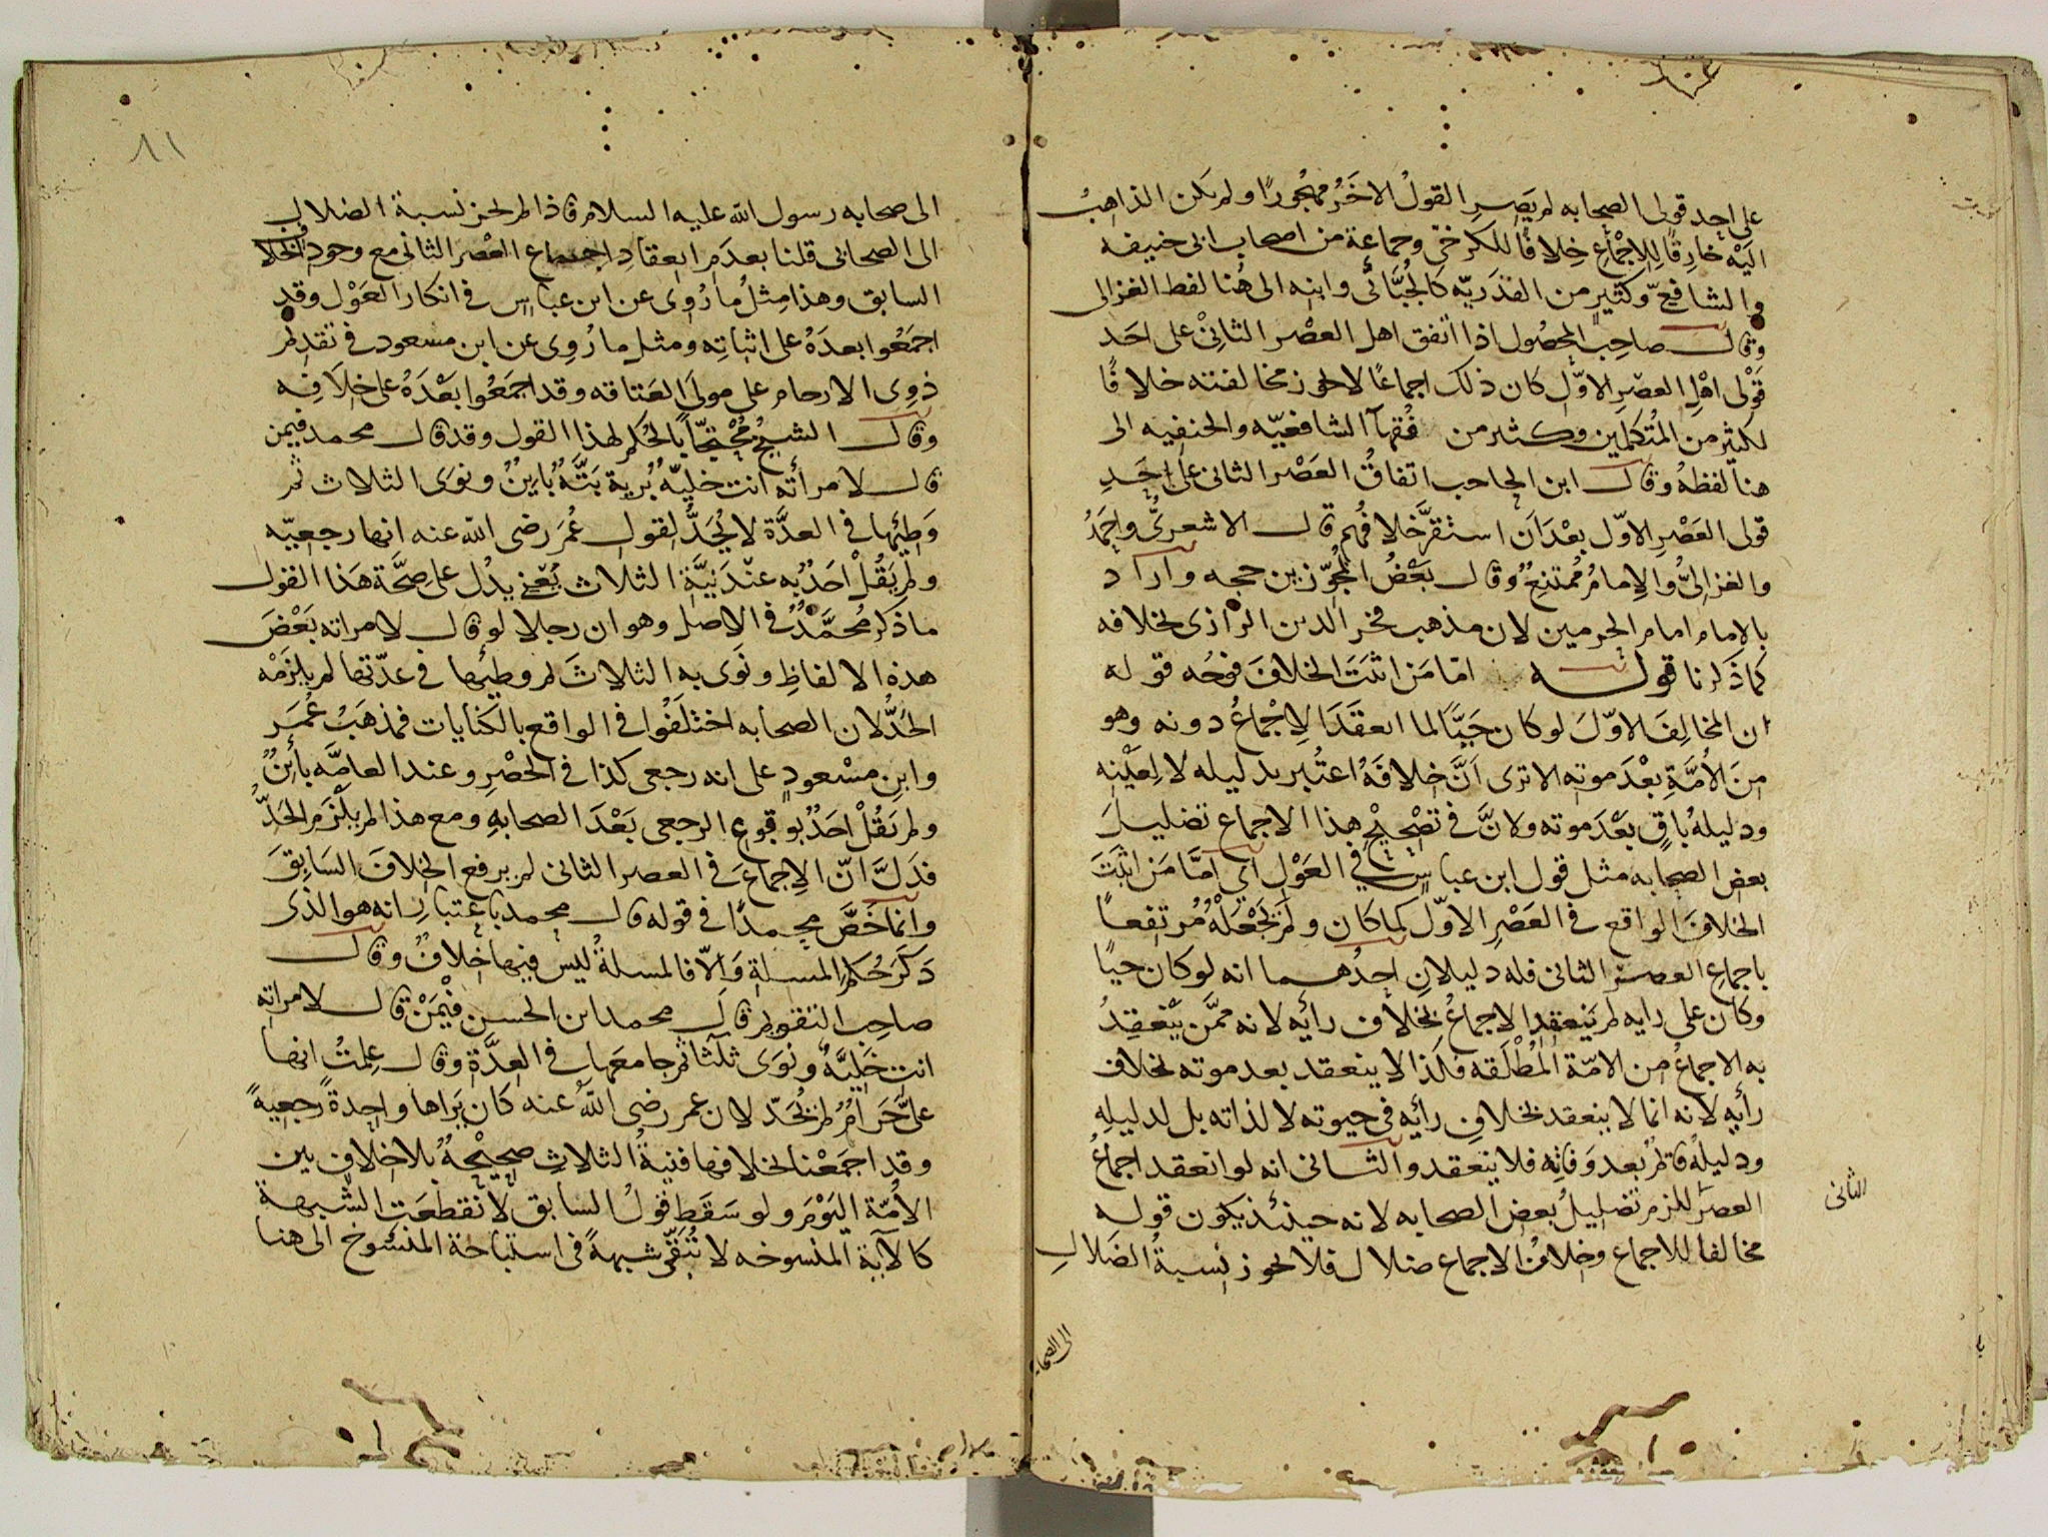 على احد قولى الصحابه لم يَصِرِ القولُ الاخَرُ مهجُورًا ولم يكن الذاهبُ
اليَه خارِقًا لِلاِجْماع خِلافًا للكرخىّ وجماعة من اصحاب ابى حنيفه
والشافعىّ وكثيرٍ من القدَريّه كالجُبَّائى وابنه الى هُنا لفظ الغزالى
وقال صاحِبُ المحصُول اذا اتفق اهل العصْر الثانىْ على احَد
قَوْلى اهْلِ العصْرِ الاوّل كان ذلك اجماعًا لا يجوز مخالفته خلافًا
لكثيرٍ من المتُكلمين وكثير من فُقهآ الشافعيّه والحنفيه الى
هنا لفظهُ وقال ابن الحاجب اتفاقُ العَصْر الثانى على احَدِ
قولى العَصْرِ الاوّل بعْدَ اَن استقرَّ خلافُهم قال الاشعرىُّ واحمَدُ
والغزالىُّ والاِمامُ مُمتنِعٌ وقال بَعْضُ المجُوّزين حجه واراد
بالامام امام الحرمين لان مذهب فخر الدين الرازى بخلافه
كما ذكرنا قوله امّا مَن اثبَتَ الخلافَ فوجُه قوله
ان المخالِفَ الاوّلَ لو كان حَيًّا لما انعقَدَ الاِجْماعُ دونه وهو
مِنَ الاُمَّةِ بعْدَ موته الا ترى اَنَّ خِلافَهُ اعتُبر بدليله لا لِعَيْنه
ودليلهُ باقٍ بَعْدَ موته ولانَّ فى تصْحِيْح هذا الاجماع تضليلَ
بعض الصحابه مثل قول ابن عباس فى العَوْل اى امَّا مَن اثبَتَ
الخلافَ الواقع فى العَصْرِ الاوّل كما كان ولم يَجْعَلْهُ مُرتفعاً
باجماعِ العصر الثانى فله دليلانِ احدُهما انه لو كان حيًا
وكان على رايه لم يَنعقِدِ الاجماعُ بخلاف رأيه لانه ممَّن يَنْعَقِدُ
به الاجماعُ من الامّة المُطْلَقه فلَذا لا ينعقد بعد موته بخلاف
رأيه لانه انما لا ينعقد بخلافِ رائه فى حيوته لا لذاته بل لدليله
ودليلهُ قائم بعد وَفاتِه فلا ينعقد والثانى انه لو انعقد اجماعُ
العصر للزم تضليلُ بعض الصحابه لانه حينئذ يكون قوله
مخالفا للاجماع وخلافُ الاجماع ضلال فلا يجوز نسبةُ الضلالِ
الثانى
الى الصحا
٨١
الى صحابه رسول الله عليه السلام فاذا لم يجز نسبة الضلال
الى الصحابى قلنا بعدَم انعقادِ اجماع العصْر الثانى مع وجود الخلاف
السابق وهذا مِثلُ ما رُوِى عن ابن عباسٍ فى انكار العَوْل وقد
اجمَعُوا بعدَهُ على اثباتِه ومثل ما رُوِى عن ابن مسعود فى تقديم
ذوِى الارحام على مولىَ العَتاقه وقد اجمَعُوا بَعْدَهُ على خلافِه
وقال الشيخُ مُحْتجًّا بالحُكم لهذا القول وقد قال محمد فيمن
قال لامرأته انت خليّهٌ بُرية بَتَّهٌ بايِنٌ ونوَى الثلاث ثم
وَطِئها فى العدَّة لا يُحَدُّ لقول عُمَرَ رضى الله عنه انها رجعيّه
ولم يَقُلْ احَدٌ به عنْدَ نيَّة الثلاث يَعْنى يدُل على صحَّة هَذا القول
ما ذكر مُحمَّدٌ فى الاصل وهو ان رجلا لو قال لامراته بَعْضَ
هذه الالفاظِ ونوَى به الثلاثَ ثم وطِئها فى عدّتها لم يلزَمْه
الحَدُّ لان الصحابه اختلَفُوا فى الواقع بالكنايات فمذهَبُ عُمَر
وابنِ مسْعودٍ على انه رجعى كذا فى الحَصْرِ وعند العامَّه بائنٌ
ولم يَقُلْ احَدٌ بوقوعِ الرجعى بَعْدَ الصحابهِ ومع هذا لم يلْزم الحَدُّ
فدَلَّ انّ الاِجماعَ فى العصر الثانى لم يرفع الخلافَ السَابِقَ
وانما خَصَّ محمدًا فى قوله قال محمد باعتبارِ انه هو الذى
ذَكَرَ حُكم المسلة وَالاّ فالمسلةُ ليس فيها خِلافٌ وقال
صاحِب التقويم قال محمد ابن الحسن فيْمَنْ قال لامراته
انت خَلِيَّهٌ ونوَى ثلثا ثم جامعَها فى العِدَّة وقال عِلمتُ انها
علَىَّ حَرامٌ لم يُحَدّ لان عمر رضى اللهُ عنه كان يَراها واحِدةً رجعيةً
وقد اجمَعْنا بخلافها فنيةُ الثلاثِ صحِيْحةٌ بلا خلافٍ بين
الاُمّة اليَوْمَ ولو سَقَط قولُ السابق لانقطعَت الشبهة
كالآية المنسوخه لا تُبَقّى شبهةً فى استباحة المنسُوخ الى هنا